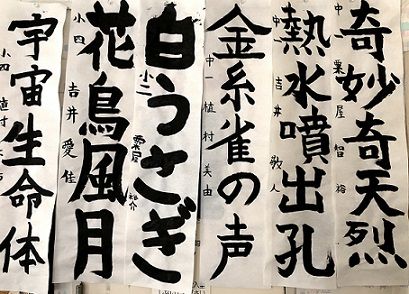 奇妙奇天烈
中一 粟屋 智裕
熱水噴出孔
中二 吉井 敬人
金糸雀の声
中一 植村 美由
白うさぎ
小二 粟屋 裕介
花鳥風月
小四 吉井 愛佳
宇宙生命体
小四 植村